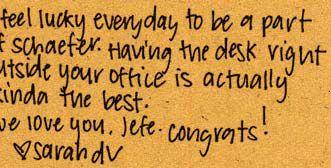 feel lucky everyday to be a part
f schaefer. Having the desk right
utside your office is actually
kinda the best.
we love you, Jefe. congrats!
♡sarahdv